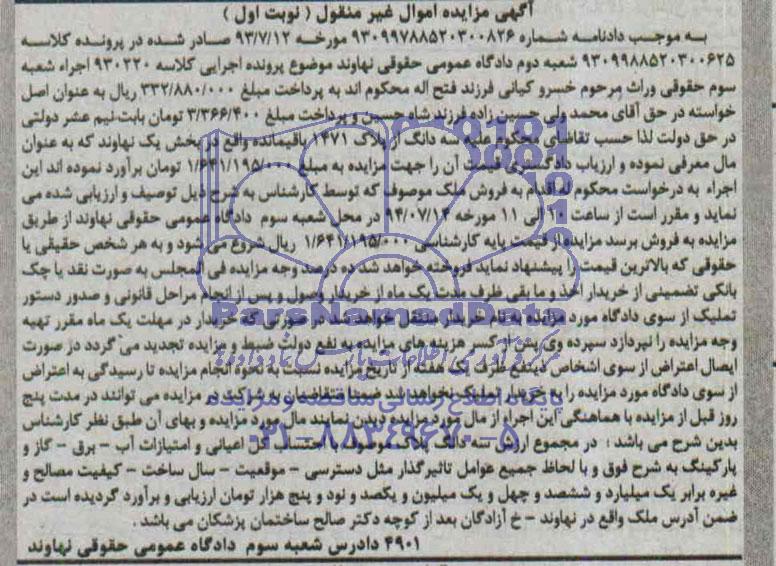 آگهی مزایده اموال غیر منقول ( نوبت اول )
به موجب دادنامه شماره ۹۳۰۹۹۷۸۸۵۲۰۳۰۰۸۲۶ مورخه ۹۳/۷/۱۲ صادر شده در پرونده کلاسه
۹۳۰۹۹۸۸۵۲۰۳۰۰۶۲۵ شعبه دوم دادگاه عمومی حقوقی نهاوند موضوع پرونده اجرایی کلاسه ۹۳۰۲۲۰ اجراء شعبه
سوم حقوقی وراث مرحوم خسرو کیانی فرزند فتح اله محکوم اند به پرداخت مبلغ ۳۳۲/۸۸۰/۰۰۰ ریال به عنوان اصل
خواسته در حق آقای محمد ولی حسین زاده فرزند شاه حسین و پرداخت مبلغ ۳/۳۶۶/۴۰۰ تومان بابت نیم عشر دولتی
در حق دولت لذا حسب تقاضای محکوم علیه سه دانگ از پلاک ۱۴۷۱ باقیمانده واقع در بخش یک نهاوند که به عنوان
مال معرفی نموده و ارزیاب دادگستری قیمت آن را جهت مزایده به مبلغ ۱/۶۴۱/۱۹۵/۰۰۰ تومان برآورد نموده اند این
اجراء به درخواست محکوم له اقدام به فروش ملک موصوف که توسط کارشناس به شرح ذیل توصیف و ارزیابی شده می
نماید و مقرر است از ساعت ۱۰ الی ۱۱ مورخه ۹۴/۰۷/۱۴ در محل شعبه سوم دادگاه عمومی حقوقی نهاوند از طریق
مزایده به فروش برسد مزایده از قیمت پایه کارشناسی ۱/۶۴۱/۱۹۵/۰۰۰ ریال شروع می شود و به هر شخص حقیقی یا
حقوقی که بالاترین قیمت را پیشنهاد نماید فروخته خواهد شد ده درصد وجه مزایده فی المجلس به صورت نقد یا چک
بانکی تضمینی از خریدار اخذ و ما بقی ظرف مدت یک ماه از خریدار وصول و پس از انجام مراحل قانونی و صدور دستور
تملیک از سوی دادگاه مورد مزایده به نام خریدار منتقل خواهد شد در صورتی که خریدار در مهلت یک ماه مقرر تهیه
وجه مزایده را نپردازد سپرده وی پس از کسر هزینه های مزایده به نفع دولت ضبط و مزایده تجدید می گردد در صورت
ایصال اعتراض از سوی اشخاص ذینفع ظرف یک هفته از تاریخ مزایده نسبت به نحوه انجام مزایده تا رسیدگی به اعتراض
از سوی دادگاه مورد مزایده را به خریدار تملیک نخواهد شد ضمنا متقاضیان به شرکت در مزایده می توانند در مدت پنج
روز قبل از مزایده با هماهنگی این اجراء از مال مورد مزایده دیدن نمایند مال مورد مزایده و بهای آن طبق نظر کارشناس
بدین شرح می باشد : در مجموع ارزش سه دانگ پلاک موصوف با احتساب کل اعیانی و امتیازات آب - برق - گاز و
پارکینگ به شرح فوق و با لحاظ جمیع عوامل تاثیرگذار مثل دسترسی - موقعیت - سال ساخت - کیفیت مصالح و
غیره برابر یک میلیارد و ششصد و چهل و یک میلیون و یکصد و نود و پنج هزار تومان ارزیابی و برآورد گردیده است در
ضمن آدرس ملک واقع در نهاوند - خ آزادگان بعد از کوچه دکتر صالح ساختمان پزشکان می باشد .
۴۹۰۱ دادرس شعبه سوم دادگاه عمومی حقوقی نهاوند
ParsNamadData
۰۲۱-۸۸۳۴۹۶۷۰-۵